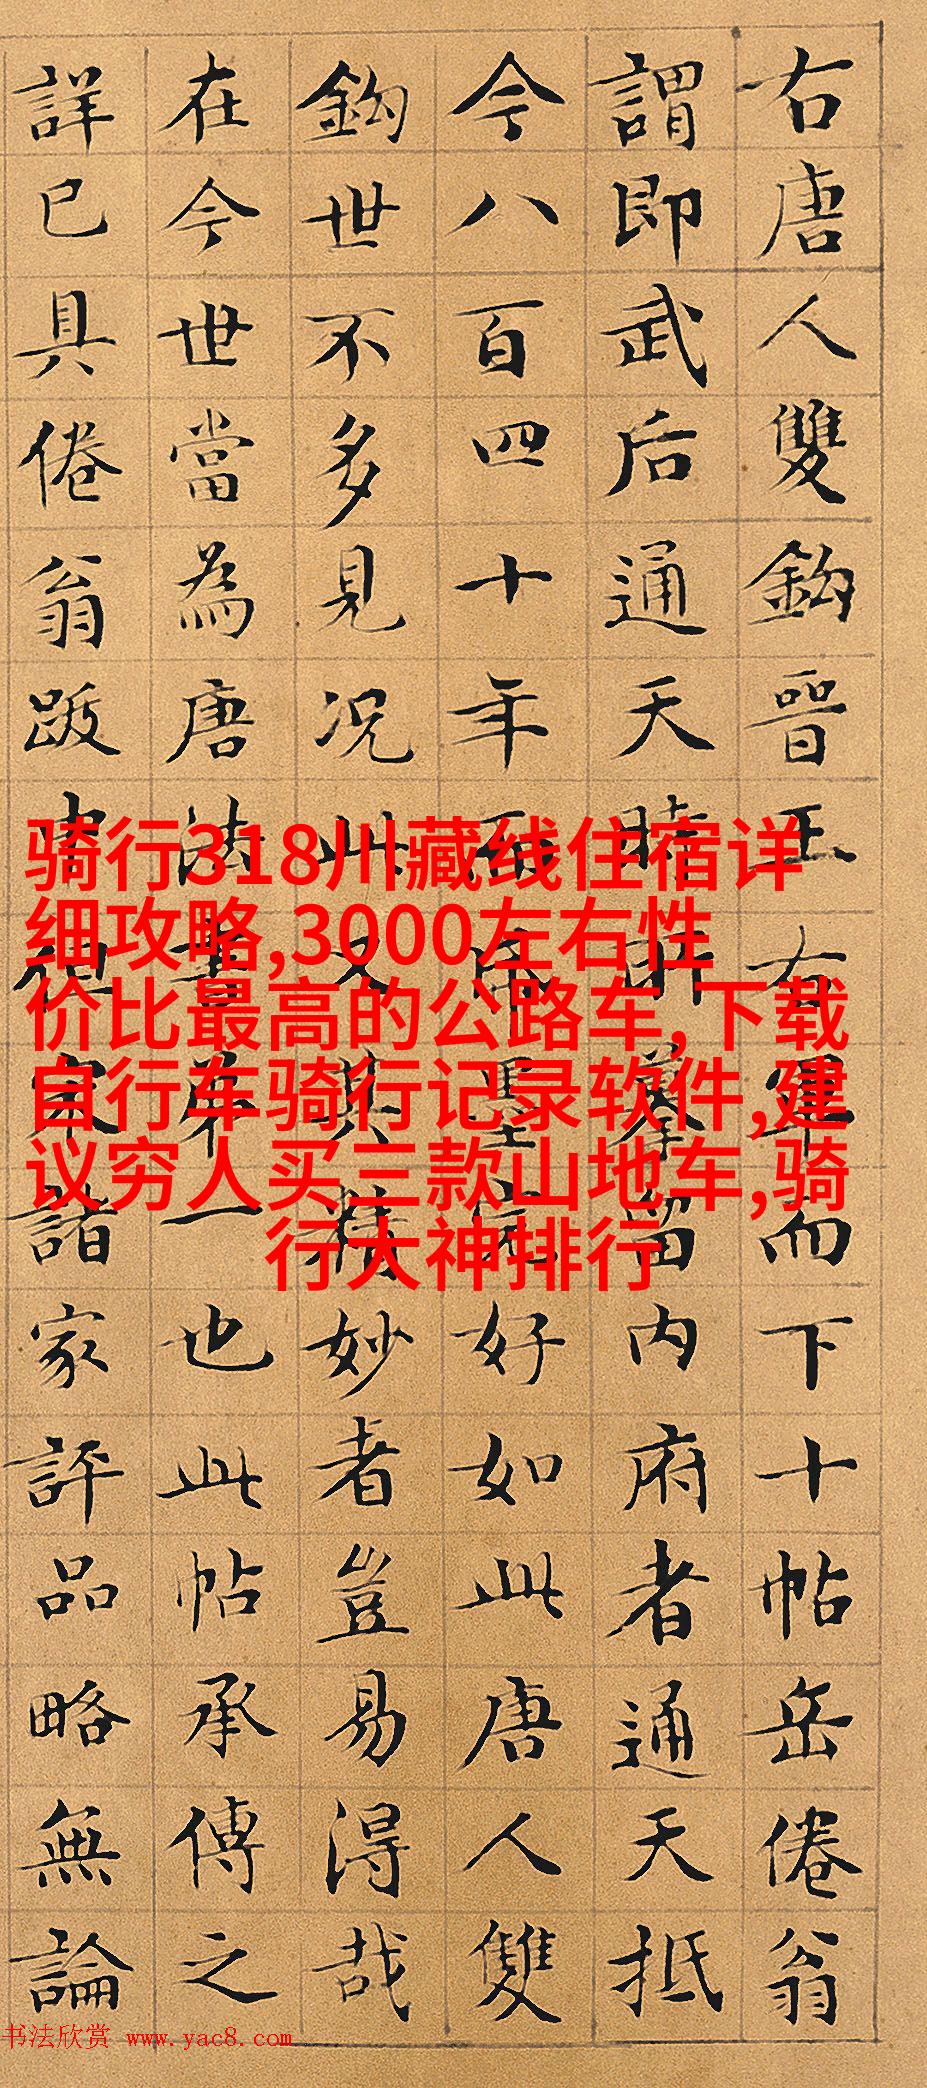 右唐人雙鈎晉王右軍而下十帖岳倦翁
謂即武后通天時所摹留內府者通天抵
今八百四十年而墨完好如此唐人雙
鈎世不多見况此又其精妙者豈易得哉
在今世當為唐法書第一也此帖承傳之
詳已具倦翁跋中但宋諸家評品略無論
骑行318川藏线住宿详
细攻略,3000左右性
价比最高的公路车,下载
自行车骑行记录软件,建
议穷人买三款山地车,骑
行大神排行
书法欣赏 www.yac8.com